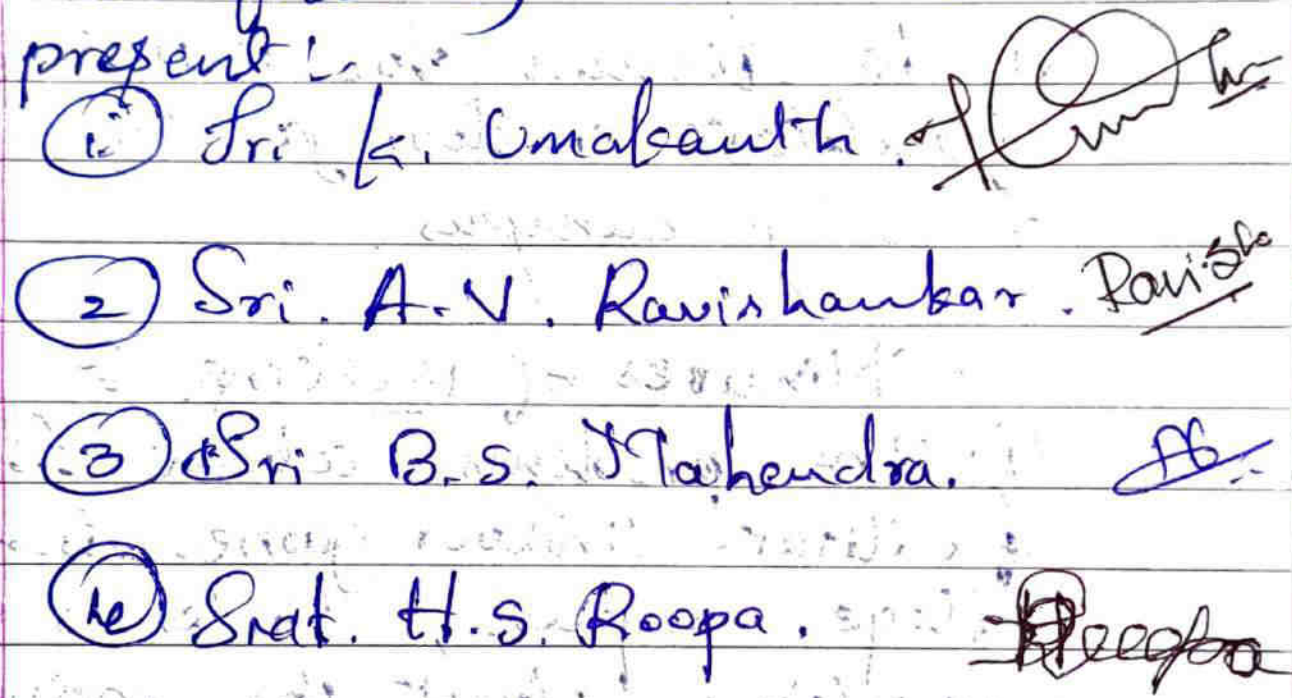 present :-
① Sri K. Umakanth.
② Sri. A.V. Ravishankar. Ravi.Sh
③ Sri B.S. Mahendra.
④ Smt. H.S. Roopa. Roopa